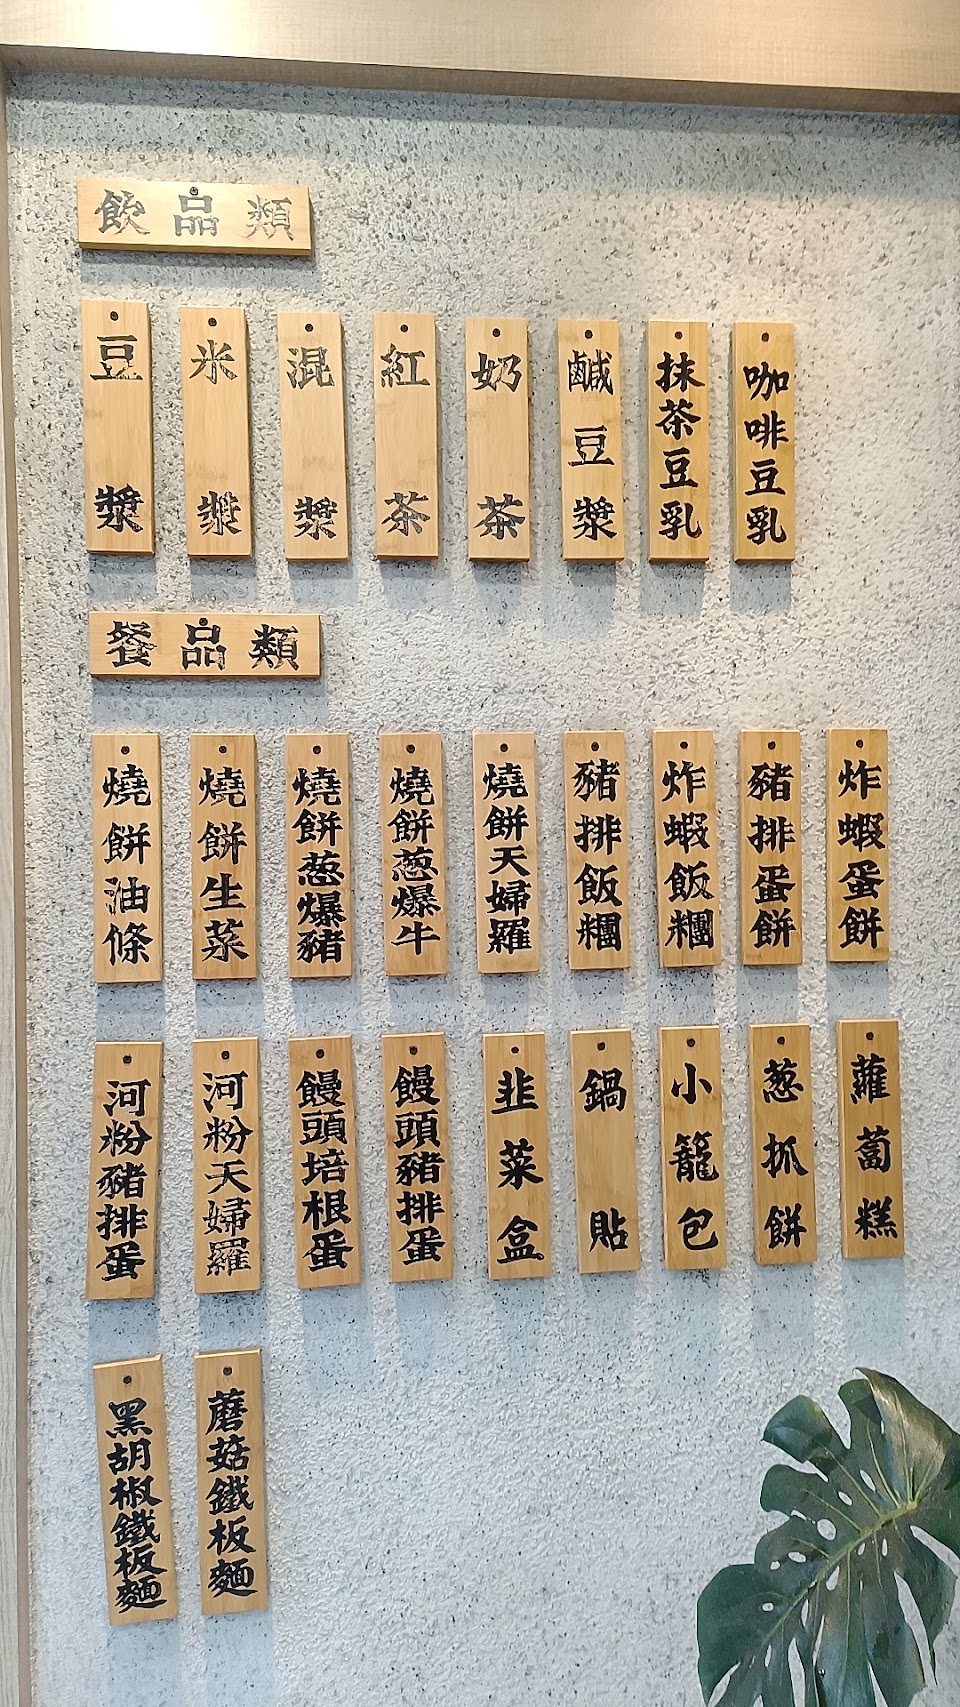 飲品類
豆漿
米漿
混漿
紅茶
奶茶
鹹豆漿
抹茶豆乳
咖啡豆乳
餐品類
燒餅油條
燒餅生菜
燒餅葱爆豬
燒餅葱爆牛
燒餅天婦羅
豬排飯糰
炸蝦飯糰
豬排蛋餅
炸蝦蛋餅
河粉豬排蛋
河粉天婦羅
饅頭培根蛋
饅頭豬排蛋
韭菜盒
鍋貼
小籠包
葱抓餅
蘿蔔糕
黑胡椒鐵板麵
蘑菇鐵板麵